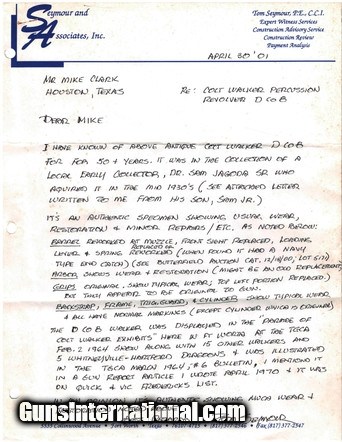 Seymour and
Associates, Inc.
Tom Seymour, P.E., C.C.I.
Expert Witness Services
Construction Advisory Service
Construction Review
Payment Analysis
APRIL 30 '01
MR MIKE CLARK
HOUSTON, TEXAS
RE: COLT WALKER PERCUSSION
REVOLVER D CO B
DEAR MIKE
I HAVE KNOWN OF ABOVE ANTIQUE COLT WALKER D CO B
FOR FOR 50+ YEARS. IT WAS IN THE COLLECTION OF A
LOCAL EARLY COLLECTOR, DR. SAM JAGODA SR WHO
AQUIRED IT IN THE MID 1930'S (SEE ATTACHED LETTER
WRITTEN TO ME FROM HIS SON, SAM JR.)
IT'S AN AUTHENTIC SPECIMEN SHOWING USUAL WEAR,
RESTORATION & MINOR REPAIRS / ETC. AS NOTED BELOW:
BARREL REBORED AT MUZZLE, FRONT SIGHT REPLACED, LOADING
LEVER & SPRING REPLACED OR RENEWED (WHEN FOUND IT HAD A NAVY
TYPE END CATCH) (SEE BUTTERFIELD AUCTION CAT.
ARBOR SHOWS WEAR & RESTORATION (MIGHT BE AN OLD REPLACEMENT)
GRIPS ORIGINAL, SHOW TYPICAL WEAR; LEFT PORTION REPLACED)
BUT THEY APPEAR TO BE ORIGINAL TO GUN.
BACKSTRAP, FRAME, TRIG. GUARD, & CYLINDER SHOW TYPICAL WEAR
& ALL HAVE NORMAL MARKINGS (EXCEPT CYLINDER WHICH IS
THE D CO B WALKER WAS DISPLAYED IN THE "PARADE OF
COLT WALKER EXHIBITS" HERE IN FT WORTH AT THE TGCA
FEB. 2 1964 SHOW ALONG WITH 15 OTHER WALKERS AND
5 WHITNEYVILLE-HARTFORD DRAGOONS & WAS ILLUSTRATED
IN THE TGCA MARCH 1964, #6 BULLETIN, I MENTIONED IT
IN A GUN REPORT ARTICLE I WROTE APRIL 1970 & IT WAS
ON QUICK & VIC FREDERICKS LIST.
AUTHENTIC SHOWING MUCH WEAR &
SEYMOUR
GunsInternational.com
Fax (817) 377-2547